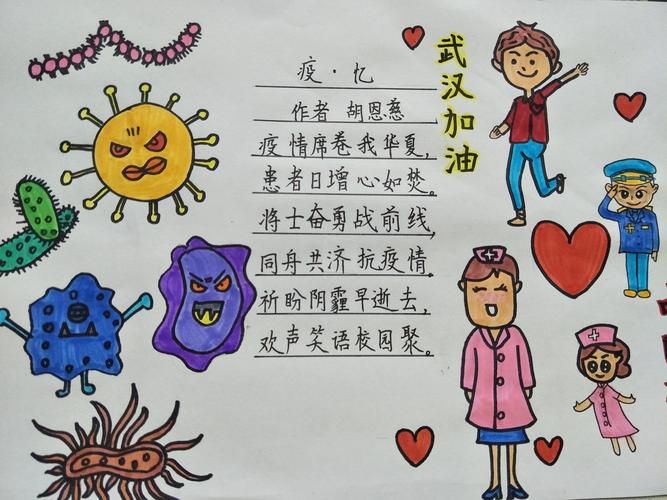 疫·忆
作者 胡恩慈
疫情席卷我华夏,
患者日增心如焚。
将士奋勇战前线,
同舟共济抗疫情。
祈盼阴霾早逝去,
欢声笑语校园聚。
武汉加油